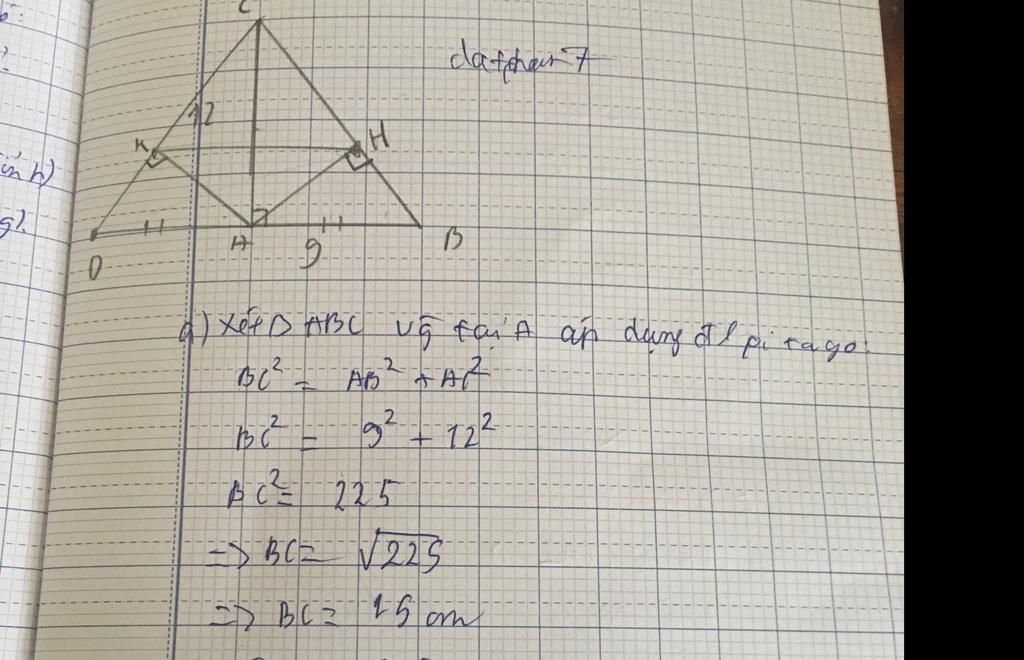 C
datphan 7
12
K
H
A
9
B
D
a) Xét Δ ABC vg tại A áp dụng đl pi ta go:
BC² = AB² + AC²
BC² = 9² + 12²
BC² = 225
=> BC = √225
=> BC = 15 cm